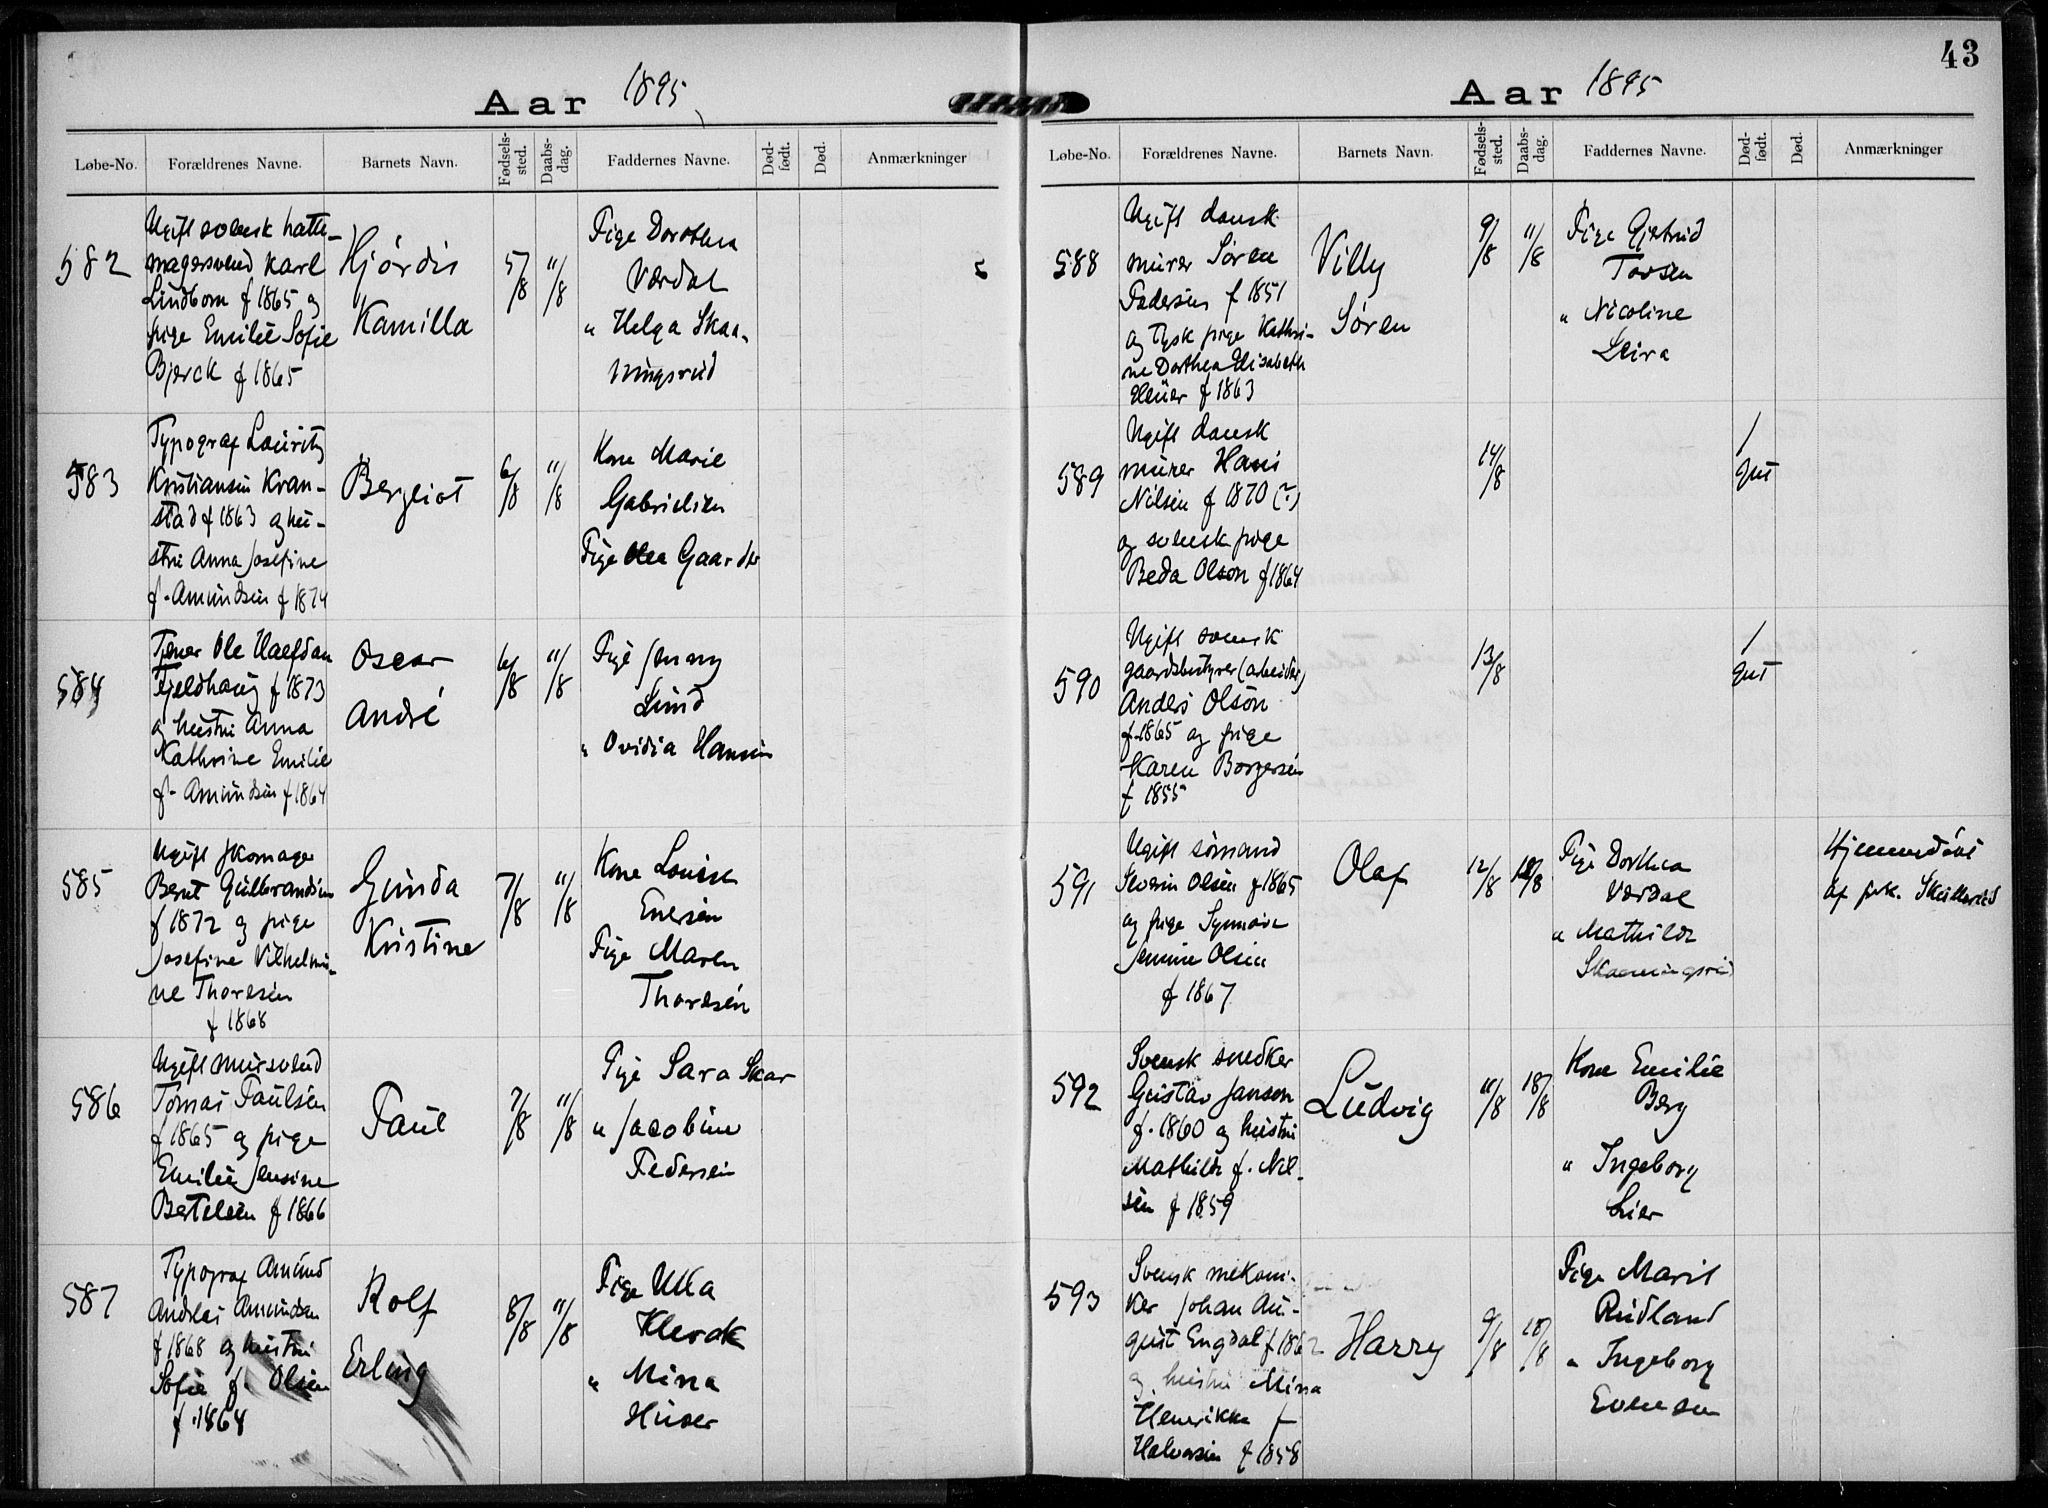 43
Aar 1895
Løbe-No. Forældrenes Navne. Barnets Navn. Fødsels-sted. Daabs-dag. Faddernes Navne. Død-født. Død. Anmærkninger
582
Ugift svensk hatte-
magersvend Karl
Lindbom f 1865 og
pige Emilie Sofie
Bjerck f 1865
Hjørdis
Kamilla
5/8 11/8
Pige Dorothea
Værdal
" Helga Skaa-
ningsrud
583
Typograf Lauritz
Kristiansen Kran-
stad f 1863 og hu-
stru Anna Josefine
f. Amundsen f 1874
Bergliot
6/8 11/8
Kone Marie
Gabrielsen
Pige Olea Gaarder
584
Tjener Ole Halfdan
Fjeldhaug f 1873
og hustru Anna
Kathrine Emilie
f. Amundsen f 1864
Oscar
André
6/8 11/8
Pige Jenny
Lund
" Ovidia Hansen
585
Ugift skomager
Bernt Gulbrandsen
f 1872 og pige
Josefine Vilhelmi-
ne Thoresen
f 1868
Gunda
Kristine
7/8 11/8
Kone Louise
Enersen
Pige Maren
Thoresen
586
Ugift mursvend
Tomas Paulsen
f 1865 og pige
Emilie Jensine
Bertelsen f 1866
Paul
7/8 11/8
Pige Sara Skar
" Jacobine
Pedersen
587
Typograf Amund
Andreas Amundsen
f 1868 og hustru
Sofie f. Olsen
f. 1868
Rolf
Erling
8/8 11/8
Pige Ulla
Klevok
" Mina
Huser
Aar 1895
Løbe-No. Forældrenes Navne. Barnets Navn. Fødsels-sted. Daabs-dag. Faddernes Navne. Død-født. Død. Anmærkninger
588
Ugift dansk
murer Søren
Pedersen f 1851
og tysk pige Kathri-
ne Dorthea Elisabeth
f 1863
Villy
Søren
9/8 11/8
Pige Gjetrud
Tossen
" Nicoline
Leira
589
Ugift dansk
murer Hans
Nilsen f 1870 (?)
og svensk pige
Beda Olson f 1864
14/8
1
gut
590
Ugift svensk
gaardsbestyrer (arbeider)
Anders Olson
f. 1865 og pige
Karen Borgersen
f 1855
13/8
1
gut
591
Ugift sømand
Severin Olsen f 1865
og pige Synnøve
Jemine Olsen
f 1867
Olaf
12/8 18/8
Pige Dorthea
Værdal
" Mathilde
Skaaningsrud
Hjemmedøbt
af frk. Skullerud
592
Svensk snedker
Gustav Janson
f. 1860 og hustru
Mathilde f. Nil-
sen f 1859
Ludvig
11/8 18/8
Kone Emilie
Berg
" Ingeborg
Lier
593
Svensk mekani-
ker Johan Au-
gust Engdal f 1862
og hustru Mina
Henrikke f
Halvorsen f 1858
Harry
9/8 18/8
Pige Marit
Rudland
" Ingeborg
Evensen